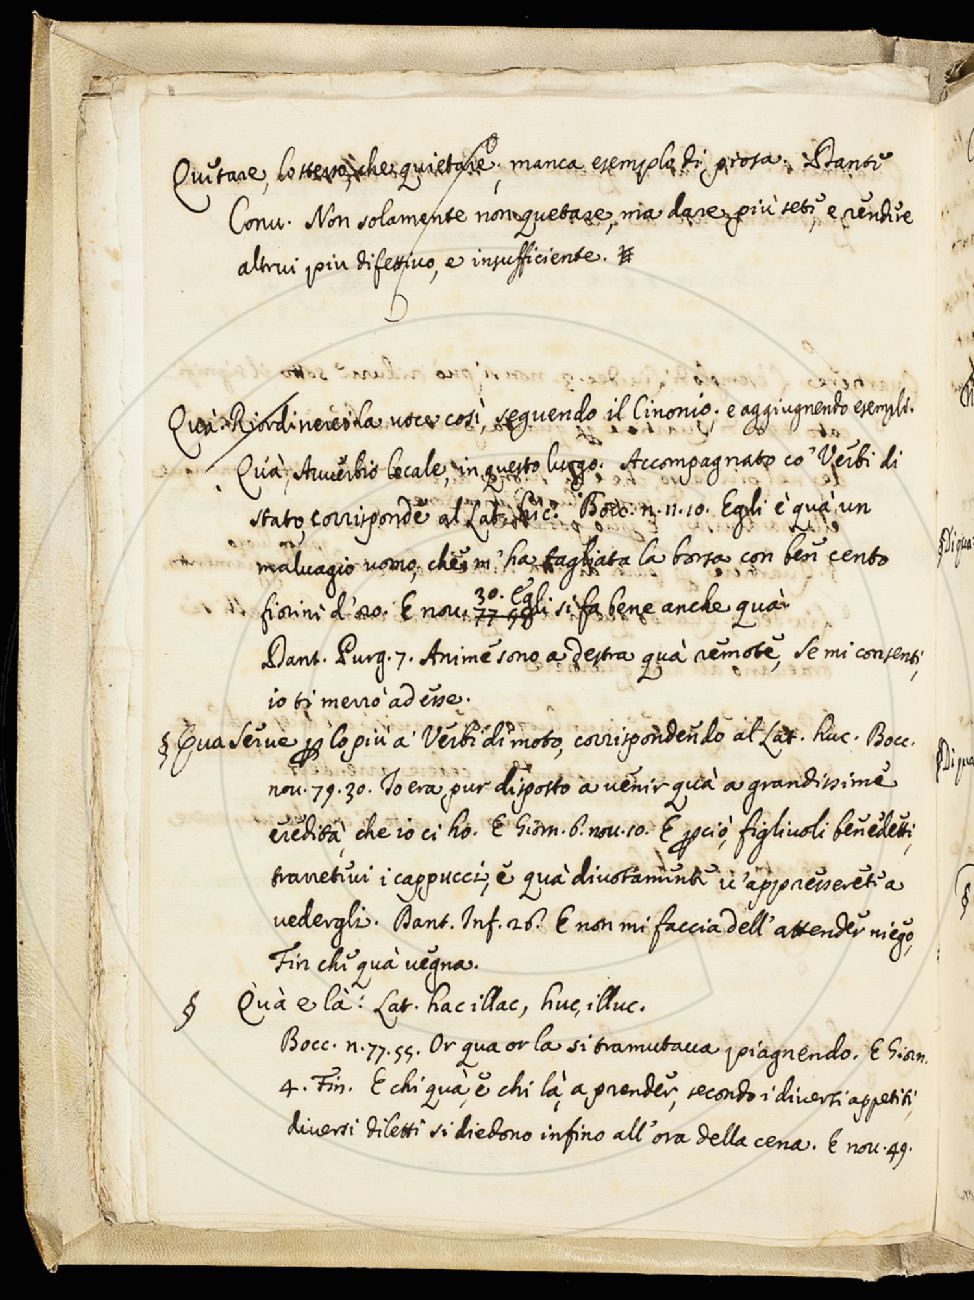 Quitare, lo stesso, che quietare; manca esemplo di prosa. Dante
Conv. Non solamente non quetare, ma dare più sete, e rendere
altrui piu difettivo, e insufficiente.
Quà. Riordinerei la voce così, seguendo il Cinonio. e aggiugnendo esempli.
Quà, Avverbio locale, in questo luogo. Accompagnato co' Verbi di
stato, corrisponde al Lat. hic. Bocc. n. 11. 10. Egli è quà un
malvagio uomo, che m'ha tagliata la borsa con ben cento
fiorini d'oro. E nov. 77 58 30. Egli si fa bene anche quà.
Dant. Purg. 7. Anime sono a destra quà remote, Se mi consenti,
io ti merrò ad esse.
§ Qua serve ꝑ lo più a' Verbi di moto, corrispondendo al Lat. huc. Bocc.
nov. 79. 30. Io era pur disposto a venir quà a grandissime
eredità, che io ci ho. E Giorn. 6. nov. 10. E ꝑciò, figlivoli benedetti,
trarretevi i cappucci, e quà divotamente v'appresserete a
vedergli. Dant. Inf. 26. E non mi faccia dell'attender niego,
Fin che quà vegna.
§ Quà e là: Lat. hac illac, huc, illuc.
Bocc. n. 77. 55. Or qua or la si tramutava piagnendo. E Giorn.
4. Fin. E chi quà, e chi là, a prender, secondo i diversi appetiti,
diversi diletti si diedono infino all'ora della cena. E nov. 49.
§ Di qua
§ Di qua
§